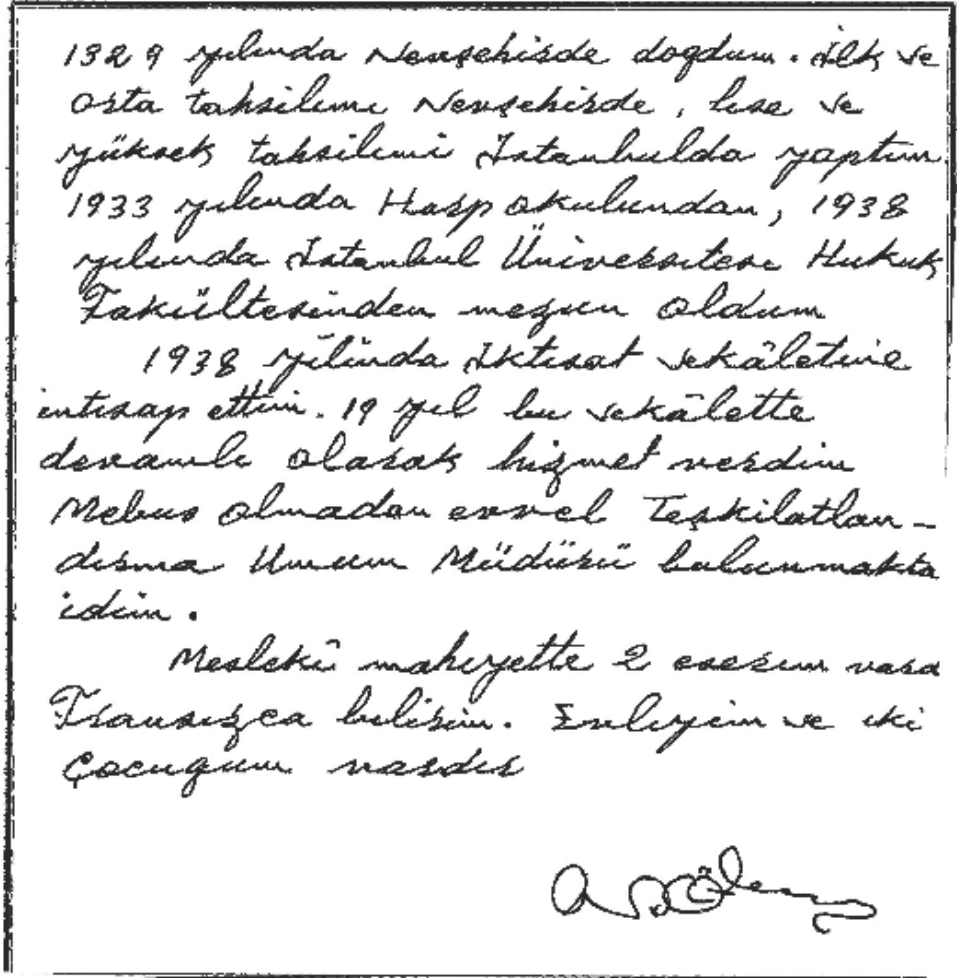 1329 yılında Nevşehirde doğdum. İlk ve
orta tahsilimi Nevşehirde, lise ve
yüksek tahsilimi İstanbulda yaptım.
1933 yılında Harp okulundan, 1938
yılında İstanbul Üniversitesi Hukuk
Fakültesinden mezun oldum
1938 yılında İktisat vekâletine
intisap ettim. 19 yıl bu vekâlette
devamlı olarak hizmet verdim
Mebus olmadan evvel Teşkilatlan-
dırma Umum Müdürü bulunmakta
idim.
Meslekî mahiyette 2 eserim var
Fransızca bilirim. Evliyim ve iki
Çocuğum vardır